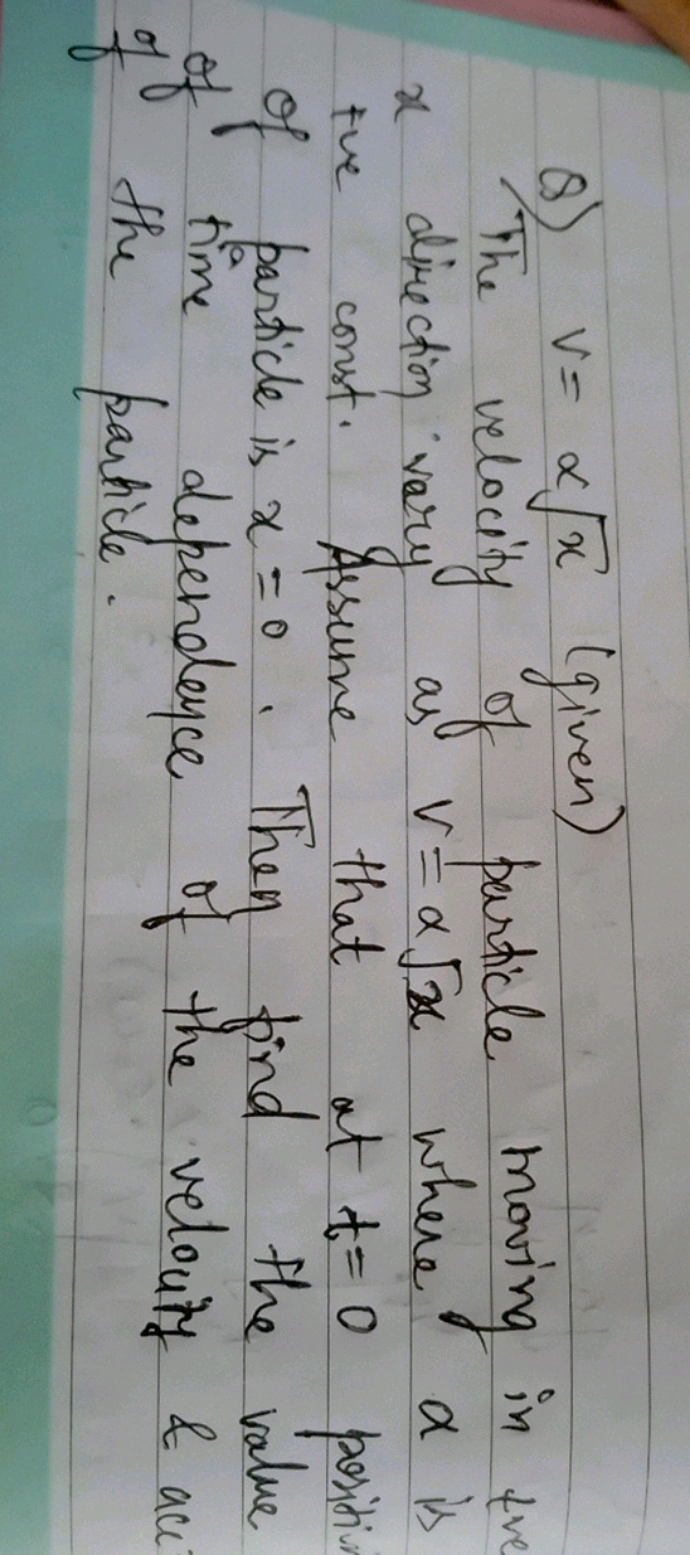 Q) v = α√x (given)
The velocity of particle moving in +ve
x direction vary as v = α√x where α is
+ve const. Assume that at t = 0 positi
of particle is x = 0. Then find the value
of time dependence of the velocity & acc
of the particle.